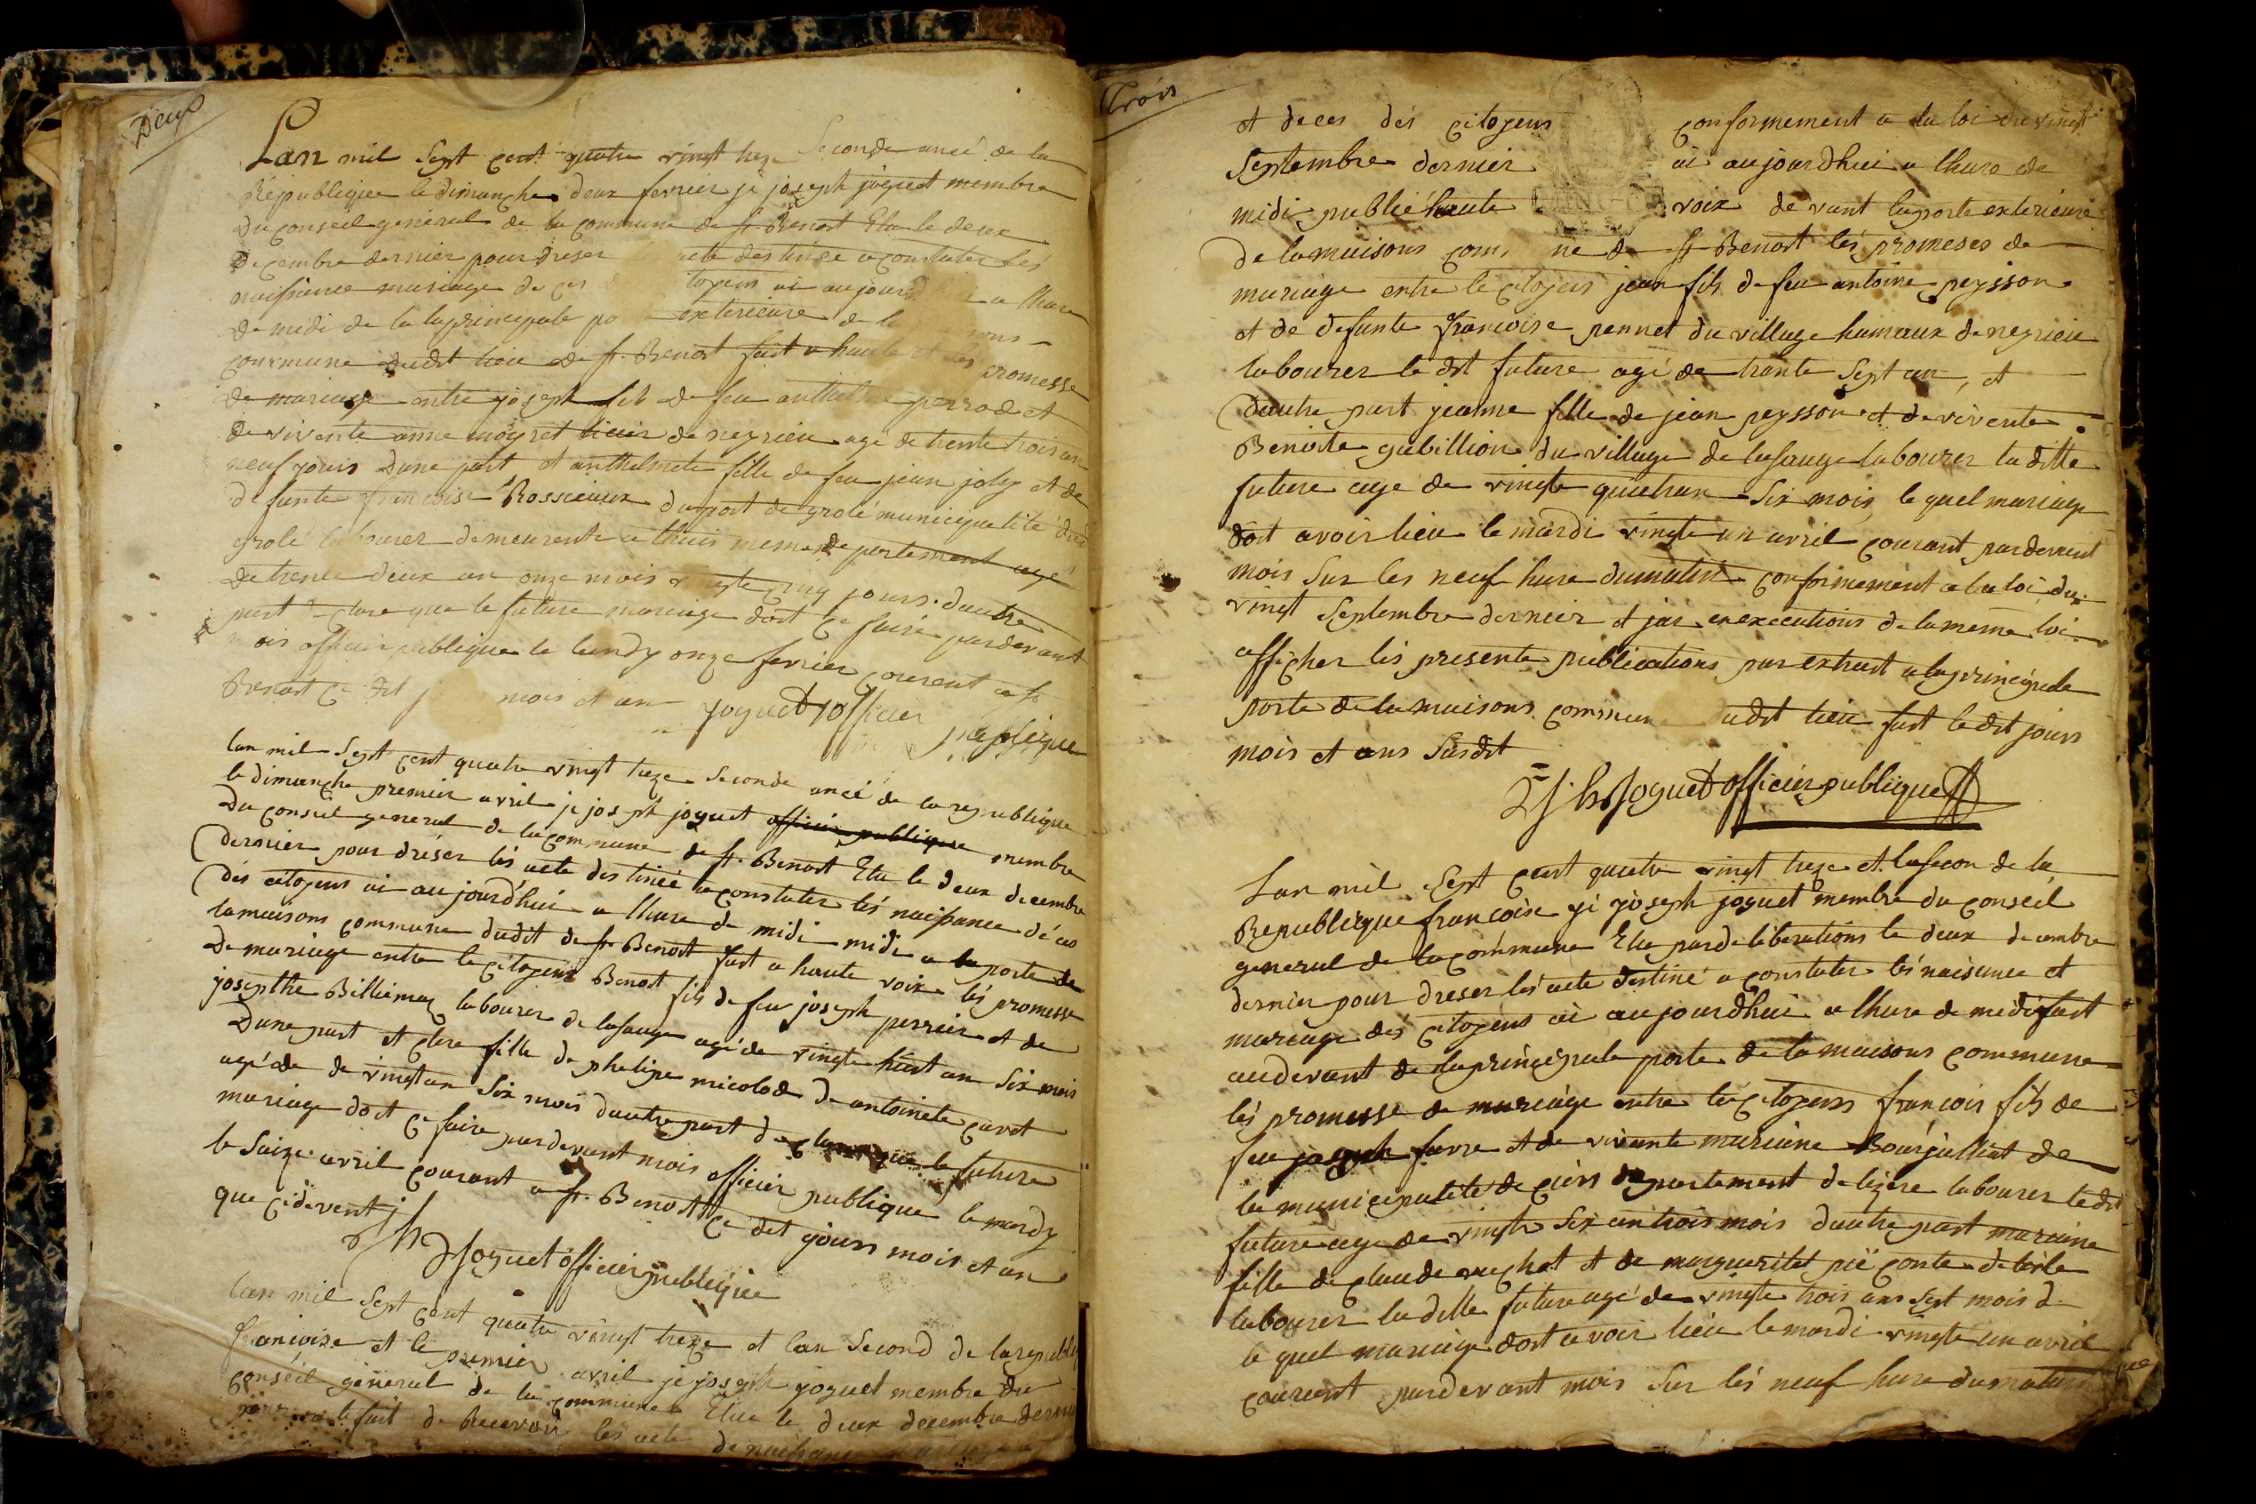 Deux
Lan mil Sept cent quatre vingt treze Seconde anée de la
République le dimanche deux fevrier je joseph joguet membre
Du conseil general de la commune de st Benoit Elu le deux
Decembre dernier pour dréser acte destinée a constater lés
naissance mariage de ces toyens ai aujourd a lhure
de midi de la la principale po exterieure de la sons
commune dudit lieu de st Benoit fait a haute et les promesse
de mariage entre joseph fils de feu anthelme perrod et
de vivente anne moyret de neyrieu age de trente trois an
neuf jours Dune part et anthelmete fille de feu jean joly et de
defunte francoise Rossieaux du port de grolé municipalité dudit
grolé labourer demeurente a theis meme departement agé
de trente deux an onze mois vingte cinq jours dautre
part clare que le future mariage doit ce faire pardevant
mois officier publique le lundy onze fevrier courent a st
Benoit ce dit j mois et an joguet officier publique
lan mil Sept cent quatre vingt treze Seconde anée de la republique
le dimanche premier avril je joseph joguet officier publique membre
Du conseil general de la commune de st Benoit Elu le deux decembre
dernier pour dréser lés acte destinée a constater lés naissance décés
dés citoyens ai au jourdhui a lhure de midi midi a la porte de
la maisons commune dudit de st Benoit fait a haute voix lés promesse
De mariage entre le citoyens Benoit fils de feu joseph perrier et de
josepthe Billiemaz labourer de lasauge agé de vingte huit an Six mois
Dune part et clere fille de phelipe micolod de antoinete carot
agé de de vingt an Six mois dautre part declare que le future
mariage doit ce faire pardevant mois officier publique le mardy
le Saize avril courant a st Benoit ce dit jours mois et an
que cidevent jh joguet officier publique
lan mil Sept cent quatre vingt treze et lan Second de la republiq
francoise et le premier avril je joseph joguet membre du
conséil géneral de la commune Elu le deux decembre dernie
pour le fait de Recevoir les acte de naissance mariage
Trois
et deces dés citoyens conformement a la loi du vingt
Septembre dernier ai aujourdhui a lhure de
midi publié haute voix devant la porte exterieure
De la maisons com ne de st Benoit lés promeses de
mariage entre le citoyens jean fils de feu antoine peysson
et de defunte francoise pennet du village hamaux de neyrieu
labourer le dit future agé de trante Sept an, et
Dautre part jeanne fille de jean peysson et de vivente
Benoite gubillion du village de lasauge labourer la ditte
future age de vingte quatran Six mois le quel mariage
doit avoir lieu le mardi vingte un avril courant pardevent
mois Sur les neuf hure du matin conformement a la loi du
vingt Septembre dernier et jai en executions de la meme loi
afficher lés presente publications par extrait a la principale
porte de la maisons commune dudit lieu fait le dit jours
mois et ans Susdit
jh joguet officier publique
Lan mil Sept cent quatre vingt treze et la secon de la
Republique francoise je joseph joguet membre du conseil
general de la commune Elu par deliberations le deux decembre
dernier pour dreser lés acte destiné a constater lés naisance et
mariage dés citoyens ai aujourdhui a lhure de midi fait
audevant de la principale porte de la maisons commune
lés promesse de mariage entre lés citoyens francois fils de
feu joseph favre et de vivante mariane Bourjalliat de
la municipalité de ciers departement de lizere labourer le dit
future age de vingte Six an trois mois dautre part mariane
fille de claude michet et de marguerite pié conte de lile
labourer la ditte future agé de vingte trois ans Sept mois d
le quel mariage doit avoir lieu le mardi vingte un avril
courent pardevant mois Sur lés neuf hure du matin